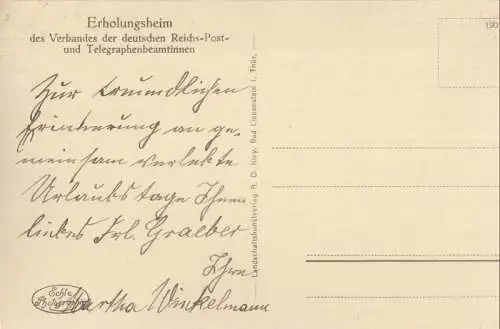 Erholungsheim
des Verbandes der deutschen Reichs-Post-
und Telegraphenbeamtinnen
Zur freundlichen
Erinnerung an ge-
meinsam verlebte
Urlaubstage Ihnen
liebes Frl. Graeber
Ihre
Martha Winkelmann
Echte
Photographie
Landschaftskunstverlag R. O. Kley, Bad Liebenstein i. Thür.